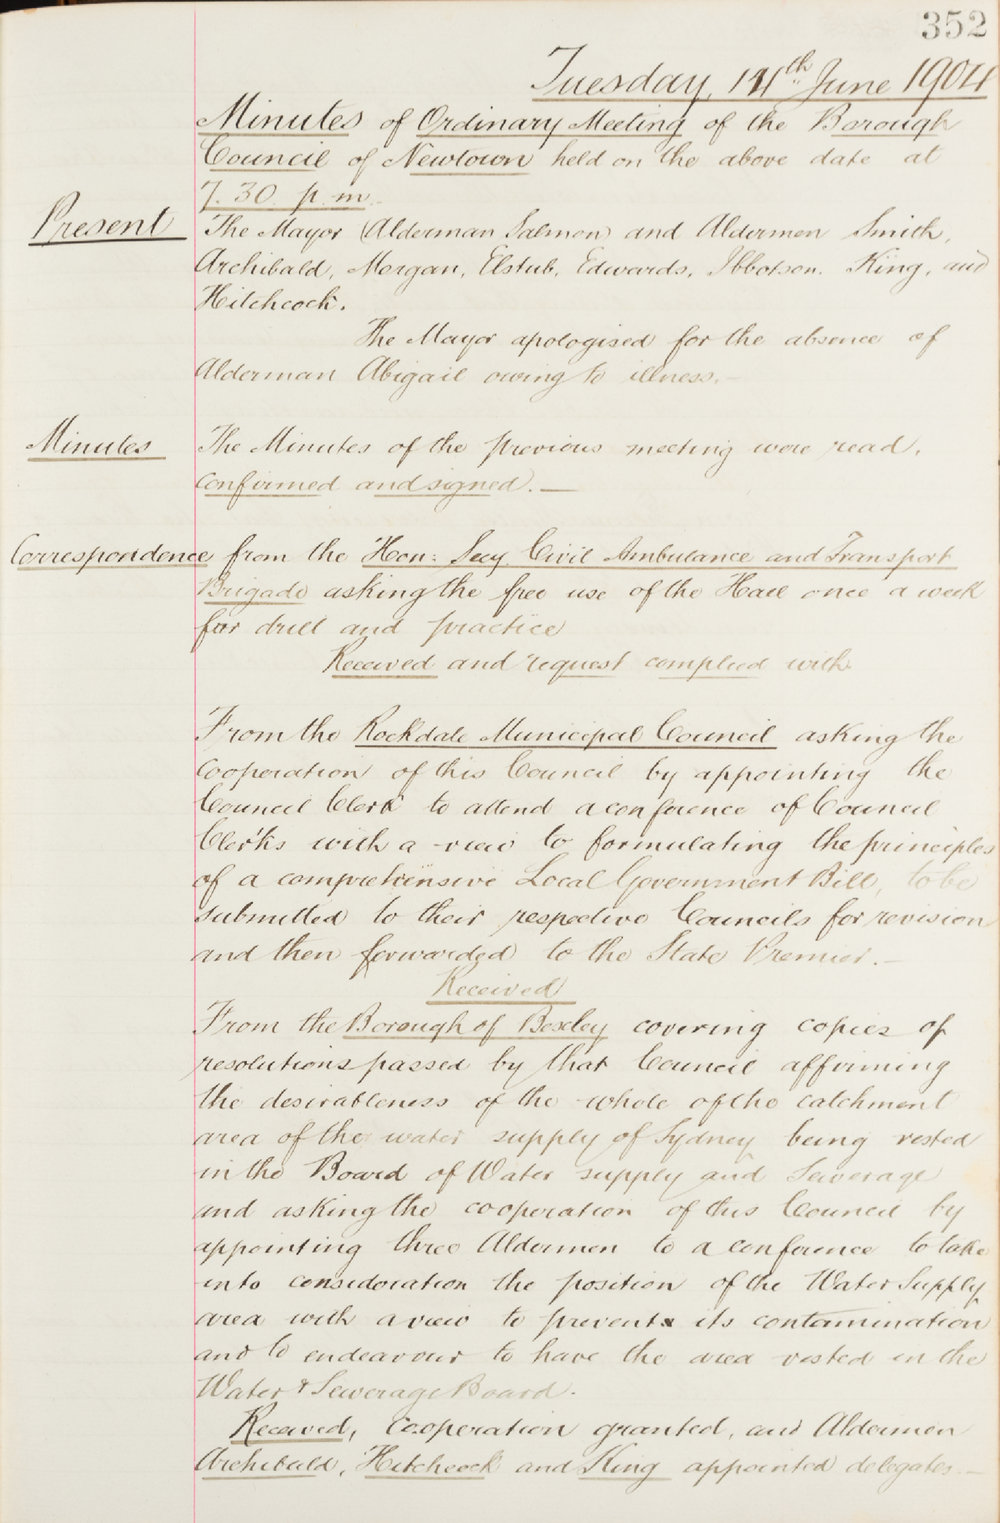 352
Tuesday, 14th June 1904
Minutes of Ordinary Meeting of the Borough
Council of Newtown held on the above date at
7.30 p.m.
Present
The Mayor (Alderman Salmon) and Aldermen Smith,
Archibald, Morgan, Elstub, Edwards, Ibbotson, King, and
Hitchcock.
The Mayor apologised for the absence of
Alderman Abigail owing to illness.—
Minutes
The Minutes of the previous meeting were read,
confirmed and signed.—
Correspondence from the Hon: Secy Civil Ambulance and Transport
Brigade asking the free use of the Hall once a week
for drill and practice
Received and request complied with
From the Rockdale Municipal Council asking the
Cooperation of this Council by appointing the
Council Clerk to attend a conference of Council
Clerks with a view to formulating the principles
of a comprehensive Local Government Bill, to be
submitted to their respective Councils for revision
and then forwarded to the State Premier.—
Received
From the Borough of Bexley covering copies of
resolutions passed by that Council affirming
the desirableness of the whole of the catchment
area of the water supply of Sydney being vested
in the Board of Water supply and Sewerage
and asking the cooperation of this Council by
appointing three Aldermen to a conference to take
into consideration the position of the Water Supply
area with a view to prevent its contamination
and to endeavour to have the area vested in the
Water & Sewerage Board.
Received, Cooperation granted, and Aldermen
Archibald, Hitchcock and King appointed delegates.—